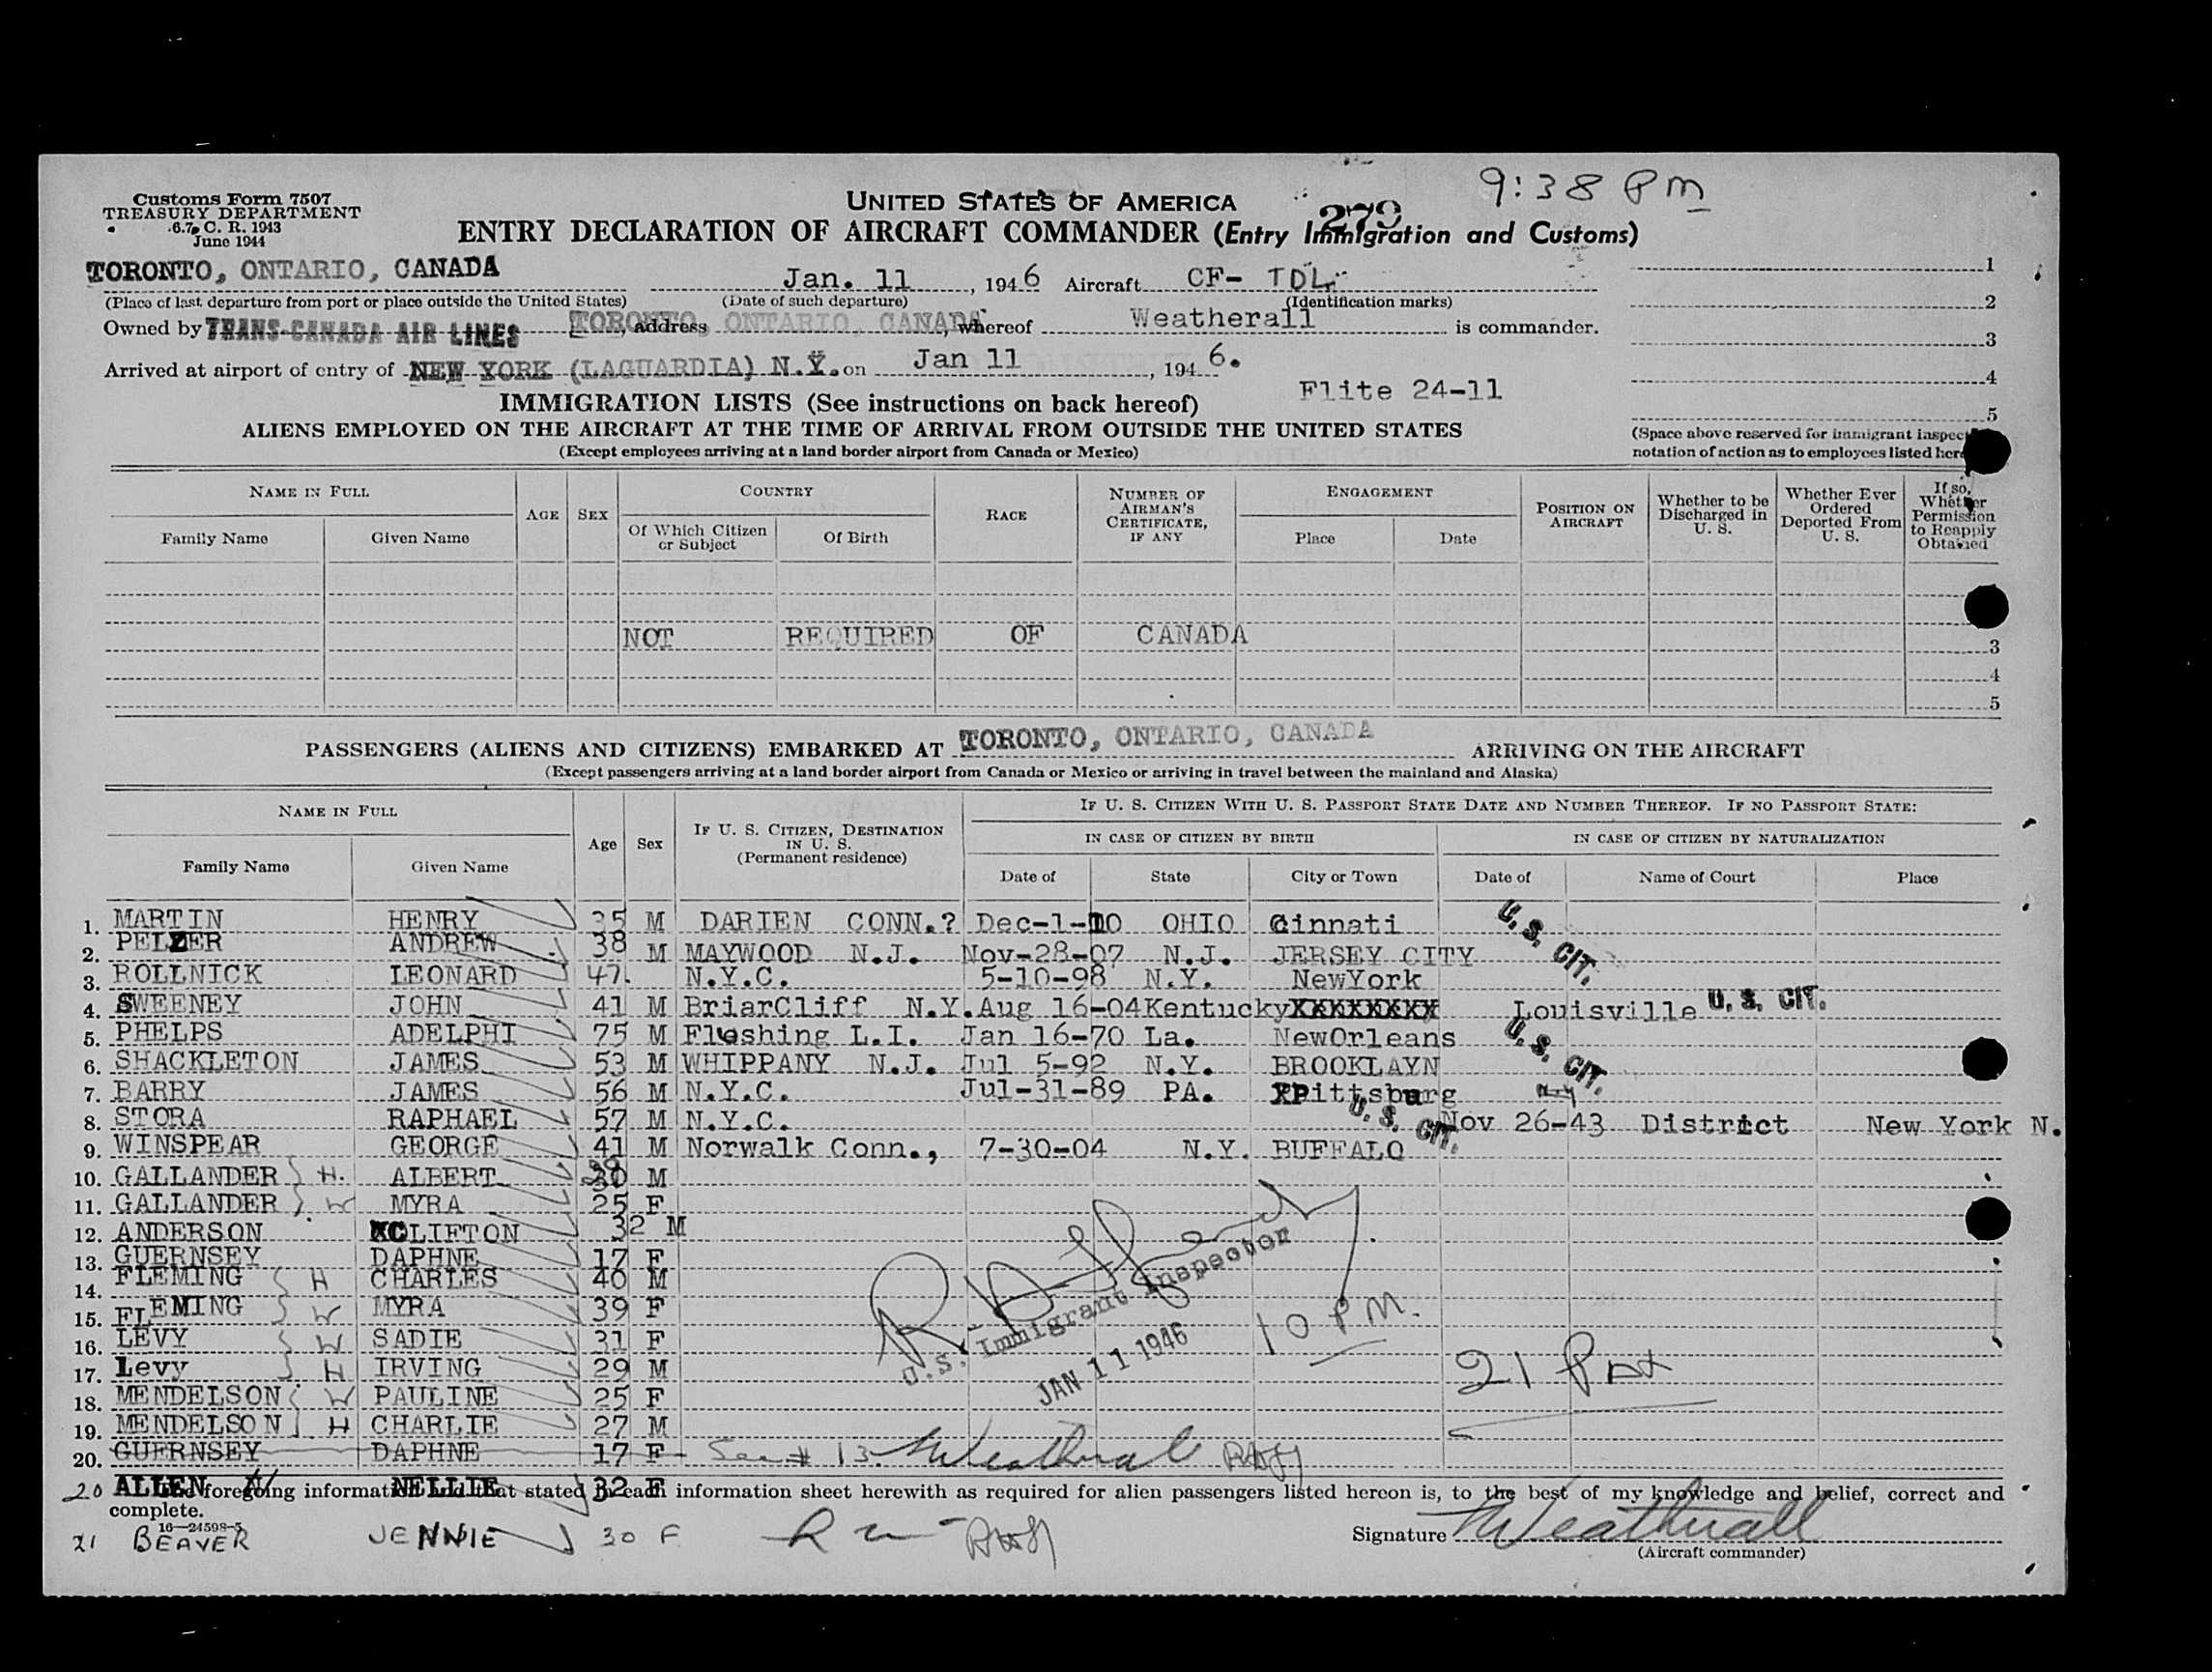 9:38 PM
Customs Form 7507
TREASURY DEPARTMENT
6.7, C. R. 1943
June 1944
UNITED STATES OF AMERICA
279
ENTRY DECLARATION OF AIRCRAFT COMMANDER (Entry Immigration and Customs)
TORONTO, ONTARIO, CANADA Jan. 11, 1946 Aircraft CF- TDL 1
(Place of last departure from port or place outside the United States) (Date of such departure) (Identification marks) 2
Owned by TRANS-CANADA AIR LINES, address TORONTO ONTARIO, CANADA, whereof Weatherall is commander. 3
Arrived at airport of entry of NEW YORK (LAGUARDIA) N.Y. on Jan 11, 1946. 4
Flite 24-11
IMMIGRATION LISTS (See instructions on back hereof) 5
ALIENS EMPLOYED ON THE AIRCRAFT AT THE TIME OF ARRIVAL FROM OUTSIDE THE UNITED STATES (Space above reserved for immigrant inspect
(Except employees arriving at a land border airport from Canada or Mexico) notation of action as to employees listed her
NAME IN FULL AGE SEX COUNTRY RACE NUMBER OF AIRMAN'S CERTIFICATE, IF ANY ENGAGEMENT POSITION ON AIRCRAFT Whether to be Discharged in U. S. Whether Ever Ordered Deported From U. S. If so, Whether Permission to Reapply Obtained
Family Name Given Name Of Which Citizen or Subject Of Birth Place Date
NOT REQUIRED OF CANADA
3
4
5
PASSENGERS (ALIENS AND CITIZENS) EMBARKED AT TORONTO, ONTARIO, CANADA ARRIVING ON THE AIRCRAFT
(Except passengers arriving at a land border airport from Canada or Mexico or arriving in travel between the mainland and Alaska)
NAME IN FULL Age Sex IF U. S. CITIZEN, DESTINATION IN U. S. (Permanent residence) IF U. S. CITIZEN WITH U. S. PASSPORT STATE DATE AND NUMBER THEREOF. IF NO PASSPORT STATE:
IN CASE OF CITIZEN BY BIRTH IN CASE OF CITIZEN BY NATURALIZATION
Family Name Given Name Date of State City or Town Date of Name of Court Place
1. MARTIN HENRY 35 M DARIEN CONN.? Dec-1-10 OHIO Cinnati U. S. CIT.
2. PELZER ANDREW 38 M MAYWOOD N.J. Nov-28-07 N.J. JERSEY CITY
3. ROLLNICK LEONARD 47. N.Y.C. 5-10-98 N.Y. NewYork
4. SWEENEY JOHN 41 M BriarCliff N.Y. Aug 16-04 Kentucky XXXXXXXX Louisville U. S. CIT.
5. PHELPS ADELPHI 75 M Floshing L.I. Jan 16-70 La. NewOrleans U. S. CIT.
6. SHACKLETON JAMES 53 M WHIPPANY N.J. Jul 5-92 N.Y. BROOKLAYN
7. BARRY JAMES 56 M N.Y.C. Jul-31-89 PA. Pittsburg
8. STORA RAPHAEL 57 M N.Y.C. U. S. CIT. Nov 26-43 District New York N.
9. WINSPEAR GEORGE 41 M Norwalk Conn., 7-30-04 N.Y. BUFFALO
10. GALLANDER H. ALBERT 30 M
11. GALLANDER W MYRA 25 F
12. ANDERSON CLIFTON 32 M
13. GUERNSEY DAPHNE 17 F
14. FLEMING H CHARLES 40 M
15. FLEMING W MYRA 39 F
16. LEVY W SADIE 31 F
17. Levy H IRVING 29 M
18. MENDELSON W PAULINE 25 F
19. MENDELSON H CHARLIE 27 M
U.S. Immigrant Inspector
JAN 11 1946
10 PM.
21 Pax
20. GUERNSEY DAPHNE 17 F See # 13 Weatherall
20 ALLEN NELLIE 32 F
The foregoing information and that stated in each information sheet herewith as required for alien passengers listed hereon is, to the best of my knowledge and belief, correct and
complete.
16—24598-5
21 BEAVER JENNIE 30 F
Signature Weatherall
(Aircraft commander)